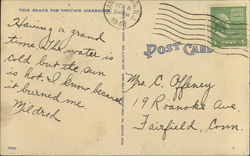 THIS SPACE FOR WRITING MESSAGES
Having a grand
time. The water is
cold but the sun
is hot. I know because
it burned me.
Mildred
POST CARD
Mrs. C. Offeney
19 Roanoke Ave
Fairfield, Conn.